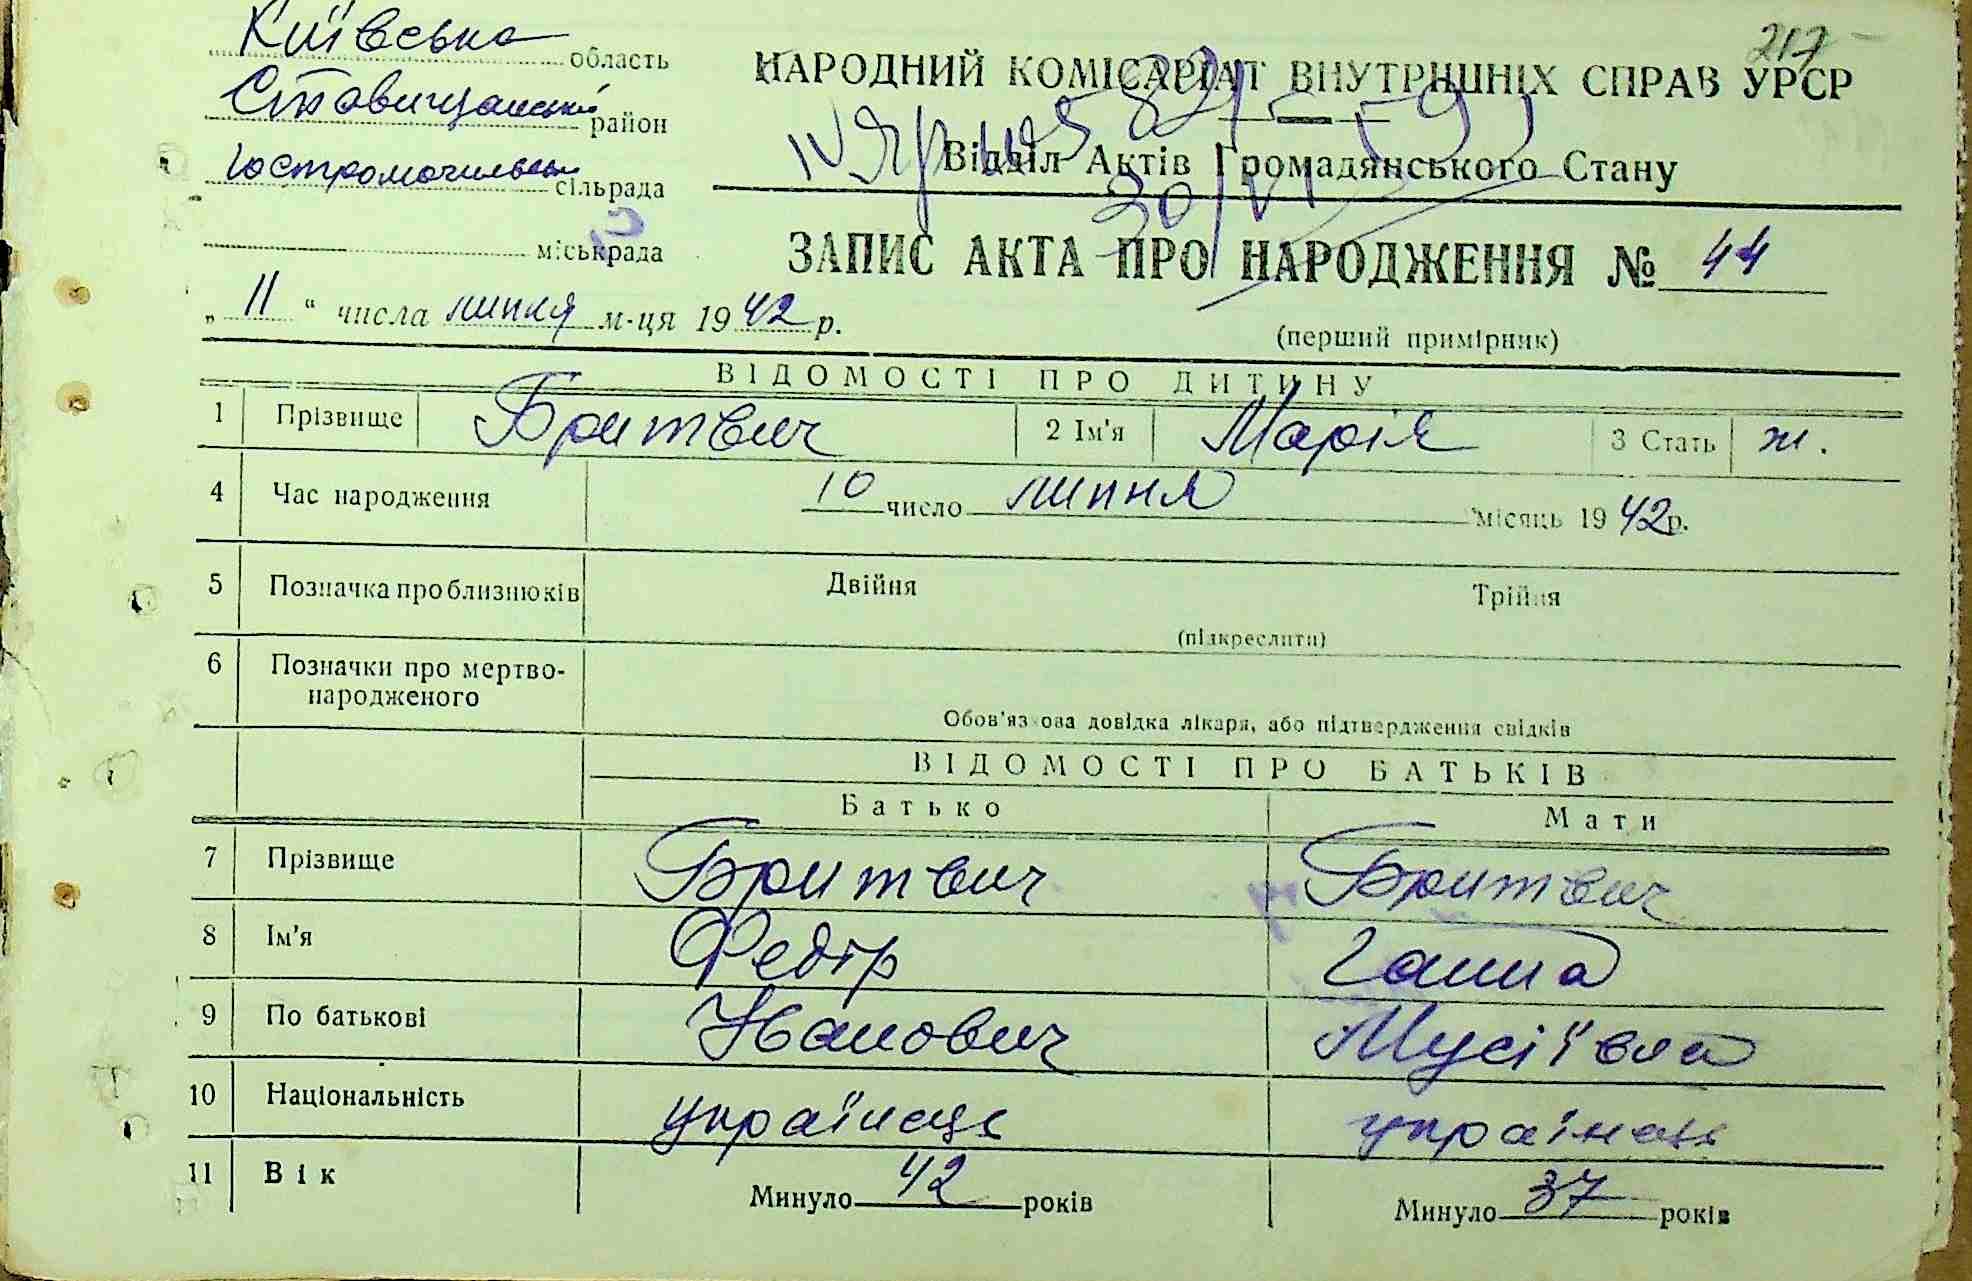 217
Київська область
Ставищанський район
Гостромогильська сільрада
міськрада
НАРОДНИЙ КОМІСАРІАТ ВНУТРІШНІХ СПРАВ УРСР
Відділ Актів Громадянського Стану
30/VI
ЗАПИС АКТА ПРО НАРОДЖЕННЯ № 44
„ 11 “ числа липня м-ця 1942 р.
(перший примірник)
ВІДОМОСТІ ПРО ДИТИНУ
1 Прізвище Бритвич 2 Ім'я Марія 3 Стать ж.
4 Час народження 10 число липня місяць 1942р.
5 Позначка про близнюків Двійня Трійня
(підкреслити)
6 Позначки про мертво-
народженого
Обов'язкова довідка лікаря, або підтвердження свідків
ВІДОМОСТІ ПРО БАТЬКІВ
Батько Мати
7 Прізвище Бритвич Бритвич
8 Ім'я Федір Ганна
9 По батькові Іванович Мусіївна
10 Національність українець українець
11 Вік Минуло 42 років Минуло 37 років